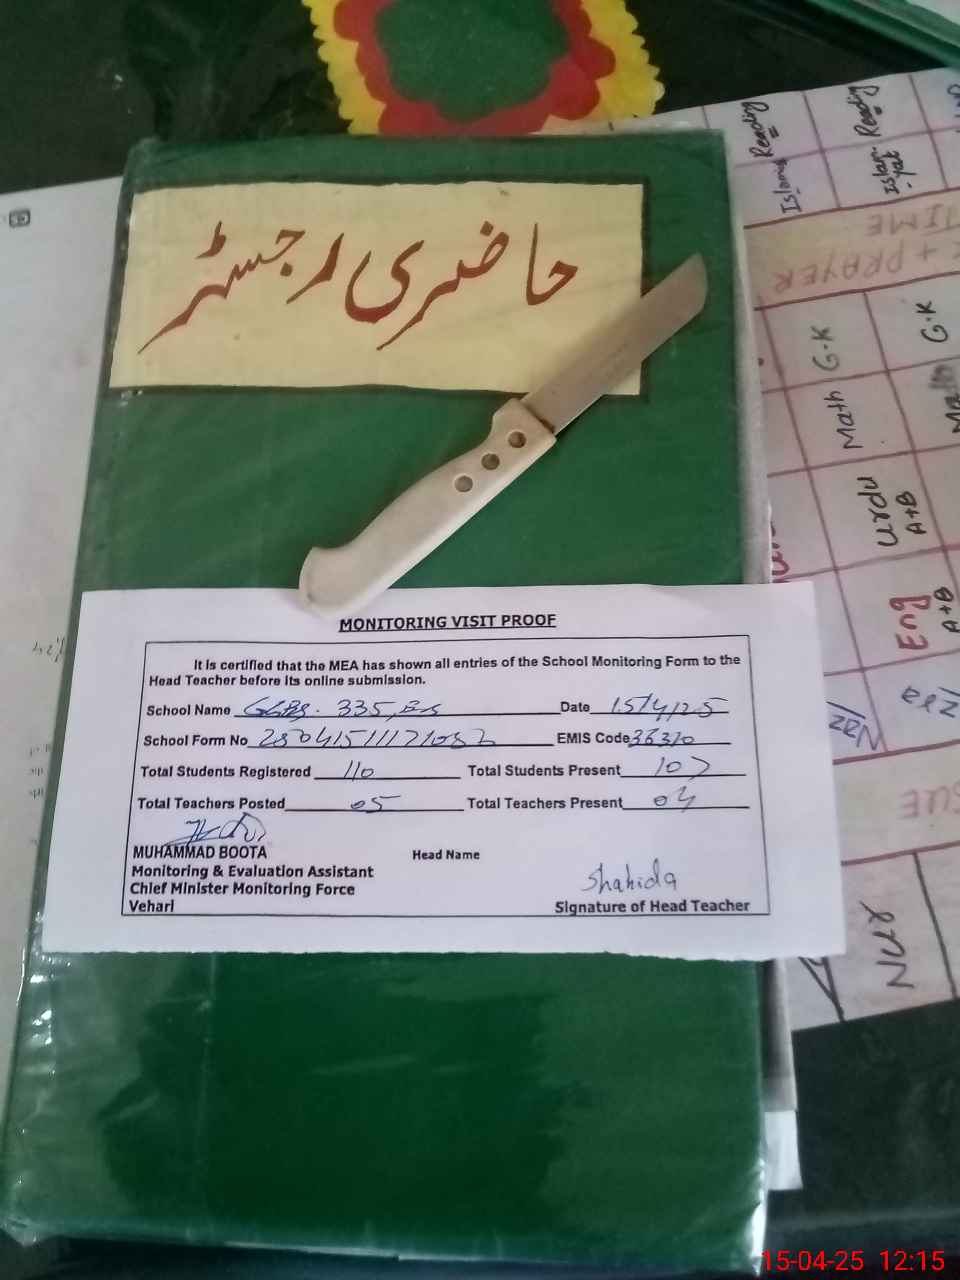 حاضری رجسٹر
MONITORING VISIT PROOF
It is certified that the MEA has shown all entries of the School Monitoring Form to the
Head Teacher before its online submission.
School Name 335, Date 15/4/25
School Form No EMIS Code
Total Students Registered 110 Total Students Present 107
Total Teachers Posted 05 Total Teachers Present 04
MUHAMMAD BOOTA Head Name
Monitoring & Evaluation Assistant
Chief Minister Monitoring Force
Shahida
Vehari Signature of Head Teacher
Reading
Reading
Islam
Islam
-yat
TIME
+ PRAYER
G.K
G.K
Math
Math
Urdu
A+B
Eng
A+B
Naz
Nur
15-04-25 12:15